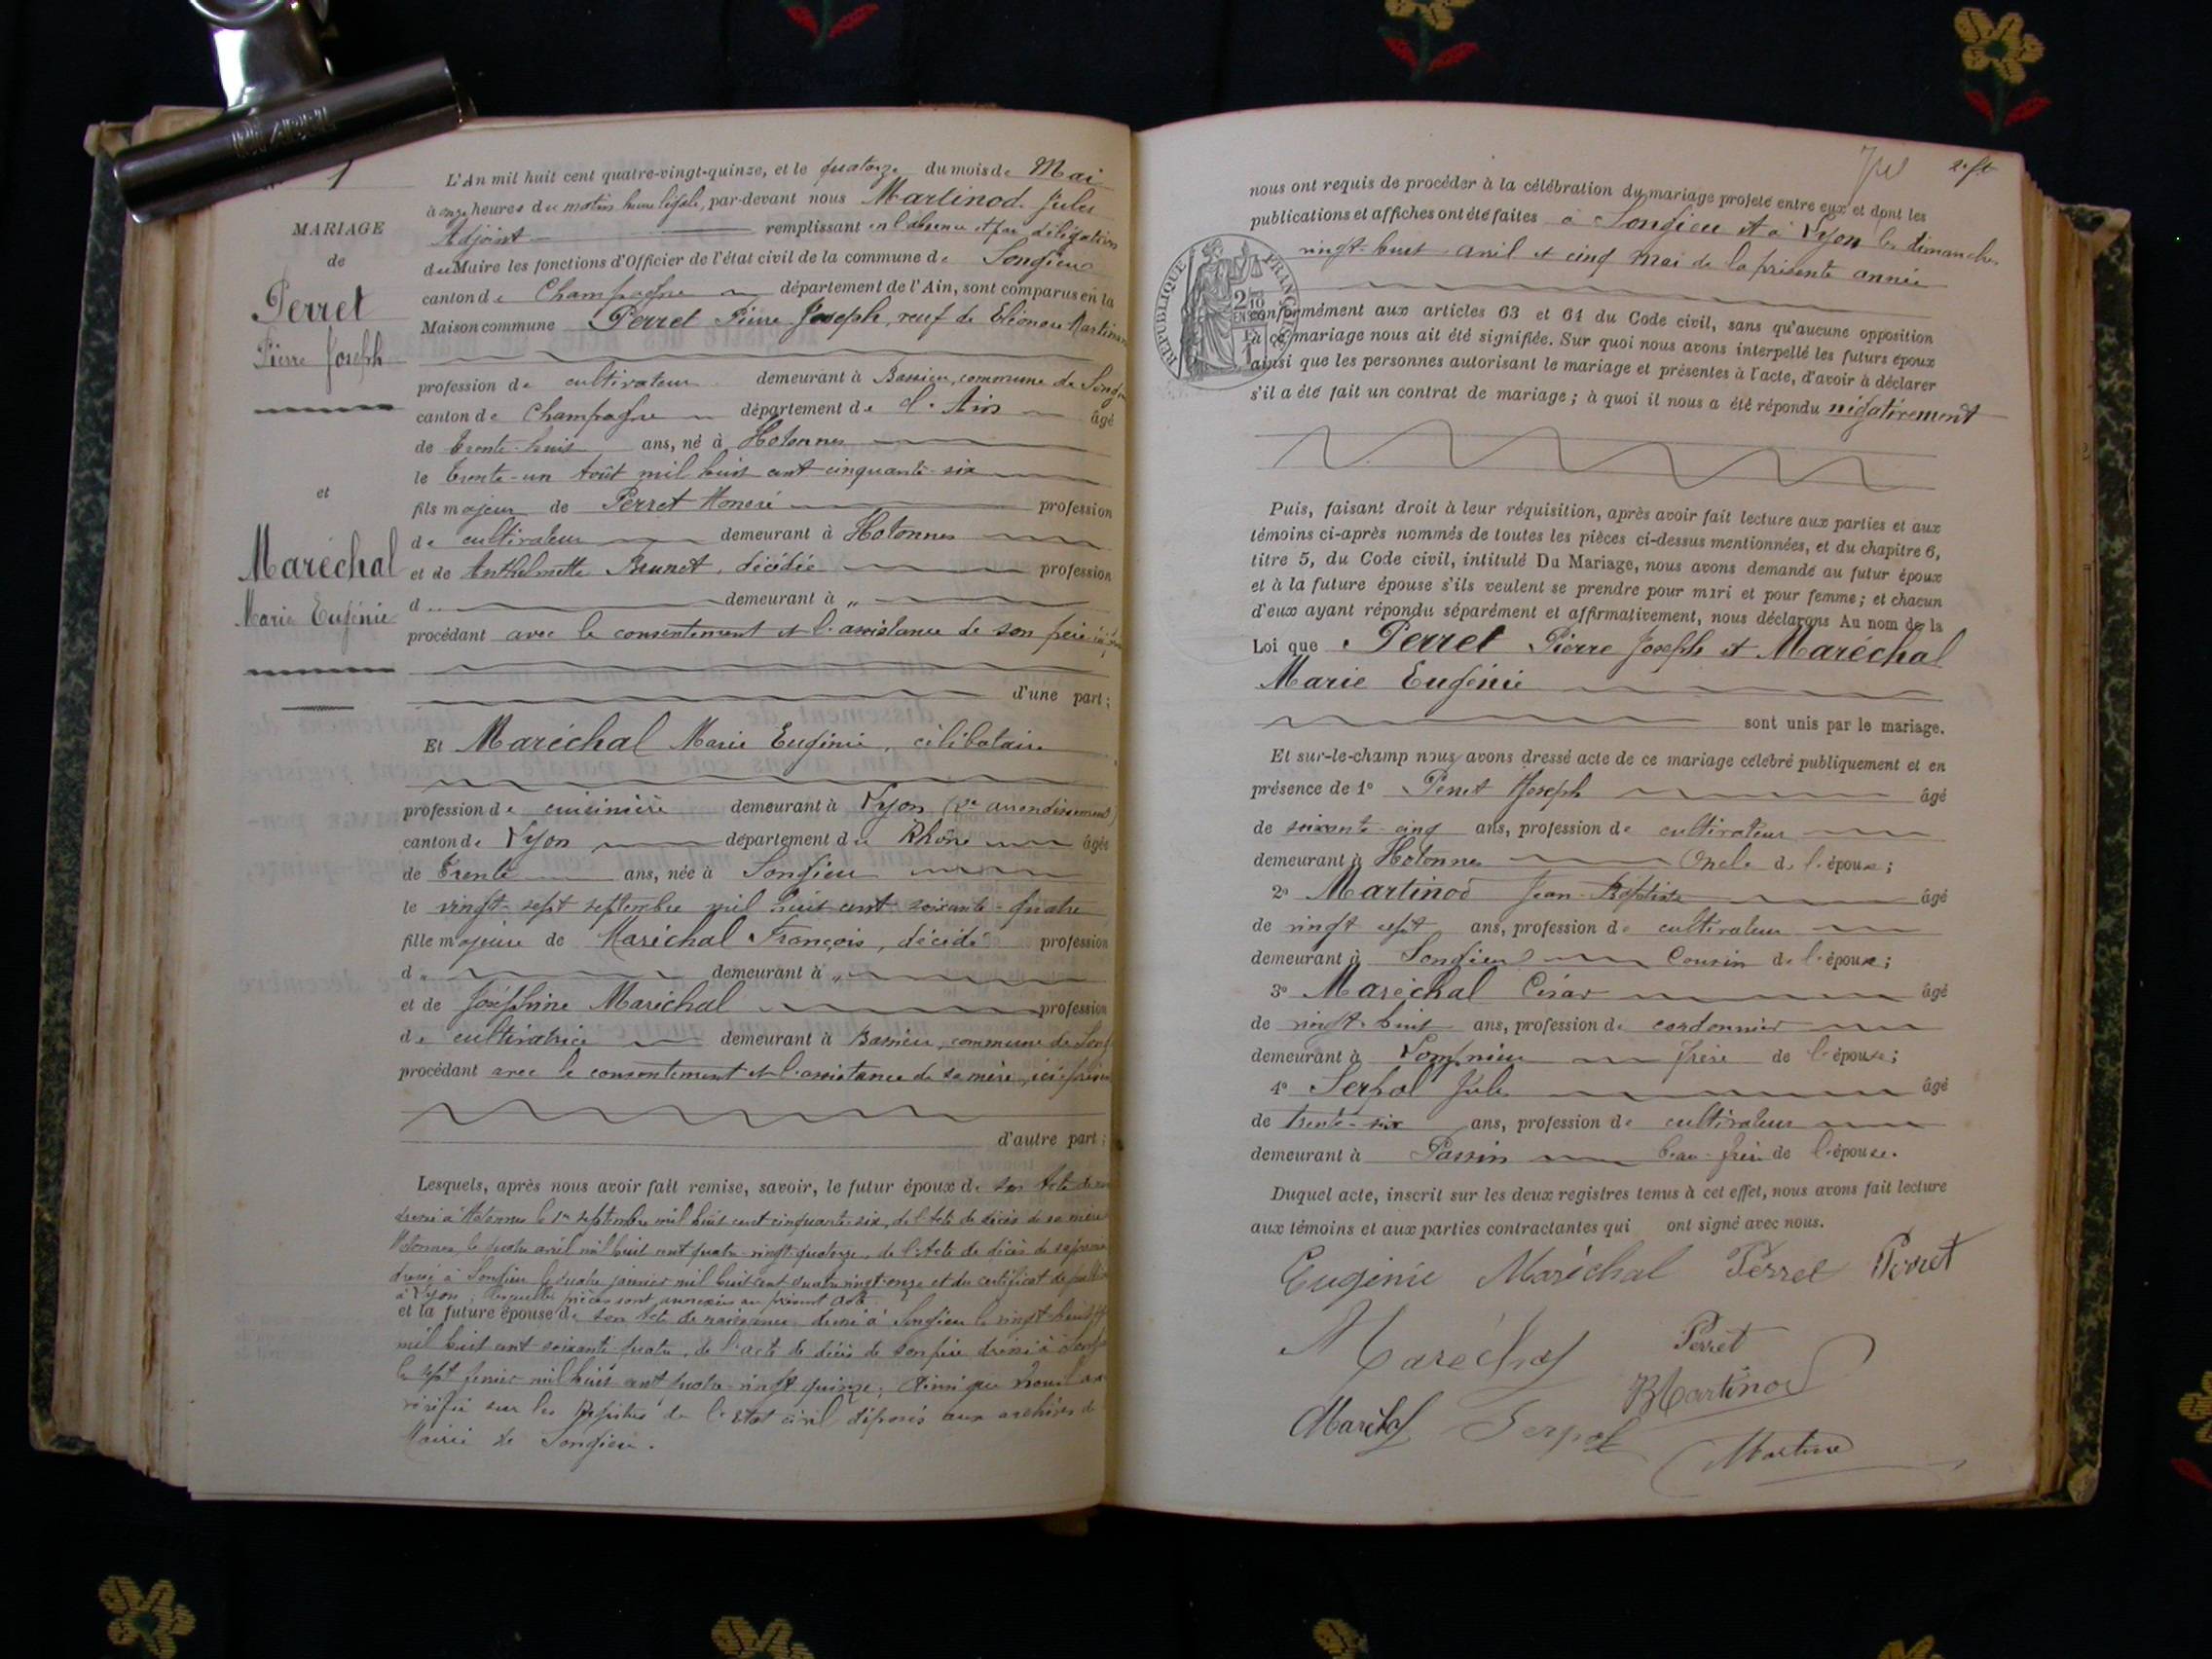 1
MARIAGE
de
Perret
Pierre Joseph
et
Maréchal
Marie Eugénie
L'An mil huit cent quatre-vingt-quinze, et le quatorze du mois de Mai
à onze heures du matin heure légale, par-devant nous Martinod Jules
Adjoint remplissant en l'absence et par délégation
du Maire les fonctions d'Officier de l'état civil de la commune de Songieu
canton de Champagne département de l'Ain, sont comparus en la
Maison commune Perret Pierre Joseph, veuf de Eléonore Martinod
profession de cultivateur demeurant à Bassieu, commune de
canton de Champagne département de l'Ain âgé
de trente-huit ans, né à Hotonnes
le trente-un Août mil huit cent cinquante-six
fils majeur de Perret Honoré profession
de cultivateur demeurant à Hotonnes
et de Anthelmette Brunet, décédée profession
d demeurant à "
procédant avec le consentement et l'assistance de son père
d'une part;
Et Maréchal Marie Eugénie, célibataire
profession de cuisinière demeurant à Lyon (2e arrondissement)
canton de Lyon département du Rhône âgée
de trente ans, née à Songieu
le vingt-sept septembre mil huit cent soixante-quatre
fille majeure de Maréchal François, décédé profession
d demeurant à "
et de Joséphine Maréchal profession
de cultivatrice demeurant à Bassieu, commune de
procédant avec le consentement et l'assistance de sa mère, ici
d'autre part;
Lesquels, après nous avoir fait remise, savoir, le futur époux de son Acte de
dressé à Hotonnes le 1er septembre mil huit cent cinquante-six, de l'Acte de décès de sa mère
Hotonnes, le quatre avril mil huit cent quatre-vingt-quatorze, de l'Acte de décès de sa
dressé à Songieu le quatre janvier mil huit cent quatre vingt-onze et du certificat de
à Lyon; lesquelles pièces sont annexées au présent acte.
et la future épouse de son Acte de naissance dressé à Songieu le vingt-huit
mil huit cent soixante quatre, de l'acte de décès de son père dressé à
le sept février mil huit cent quatre-vingt quinze; Ainsi que nous
vérifié sur les Registres de l'Etat civil déposés aux archives de
Mairie de Songieu.
nous ont requis de procéder à la célébration du mariage projeté entre eux et dont les
publications et affiches ont été faites à Songieu et à Lyon les dimanches
vingt-huit avril et cinq mai de la présente année
RÉPUBLIQUE FRANÇAISE
conformément aux articles 63 et 64 du Code civil, sans qu'aucune opposition
à ce mariage nous ait été signifiée. Sur quoi nous avons interpellé les futurs époux
ainsi que les personnes autorisant le mariage et présentes à l'acte, d'avoir à déclarer
s'il a été fait un contrat de mariage; à quoi il nous a été répondu négativement
Puis, faisant droit à leur réquisition, après avoir fait lecture aux parties et aux
témoins ci-après nommés de toutes les pièces ci-dessus mentionnées, et du chapitre 6,
titre 5, du Code civil, intitulé Du Mariage, nous avons demandé au futur époux
et à la future épouse s'ils veulent se prendre pour mari et pour femme; et chacun
d'eux ayant répondu séparément et affirmativement, nous déclarons Au nom de la
Loi que Perret Pierre Joseph et Maréchal
Marie Eugénie
sont unis par le mariage.
Et sur-le-champ nous avons dressé acte de ce mariage célébré publiquement et en
présence de 1° Perret Joseph âgé
de soixante-cinq ans, profession de cultivateur
demeurant à Hotonnes Oncle de l'époux;
2° Martinod Jean-Baptiste âgé
de vingt sept ans, profession de cultivateur
demeurant à Songieu Cousin de l'époux;
3° Maréchal César âgé
de vingt-huit ans, profession de cordonnier
demeurant à Lompnieu frère de l'épouse;
4° Serpol Jules âgé
de trente-six ans, profession de cultivateur
demeurant à Passin beau-frère de l'épouse.
Duquel acte, inscrit sur les deux registres tenus à cet effet, nous avons fait lecture
aux témoins et aux parties contractantes qui ont signé avec nous.
Eugénie Maréchal Perret Perret
Maréchal Perret
Martinod
Maréchal Serpol